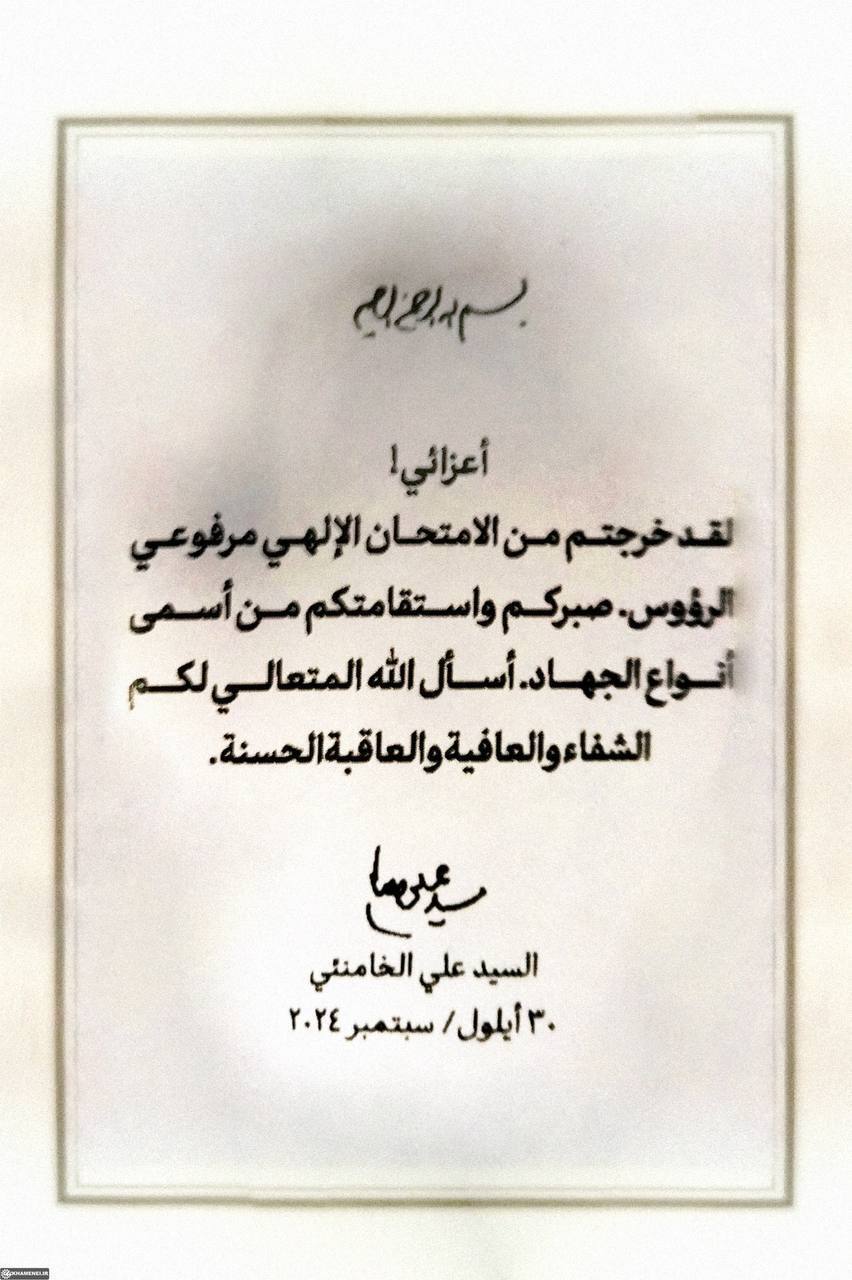 بسم الله الرحمن الرحیم
أعزائي!
لقد خرجتم من الامتحان الإلهي مرفوعي
الرؤوس. صبركم واستقامتكم من أسمى
أنواع الجهاد. أسأل الله المتعالي لكم
الشفاء والعافية والعاقبة الحسنة.
السيد علي الخامنئي
٣٠ أيلول/ سبتمبر ٢٠٢٤
KHAMENEI.IR